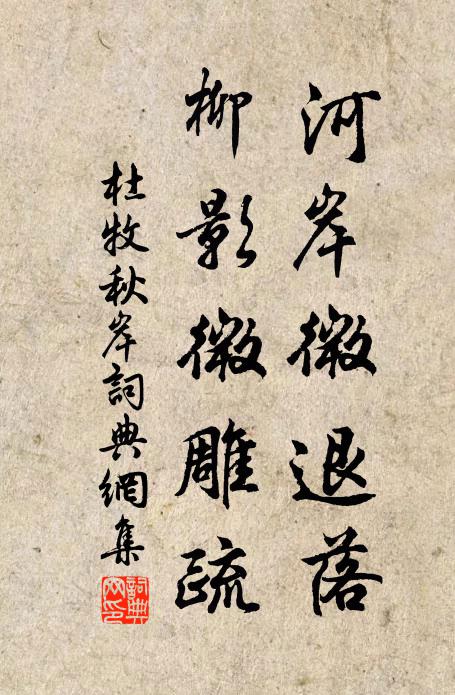 河岸微退落
柳影微雕疏
杜牧秋岸詞典網集
詞典網印